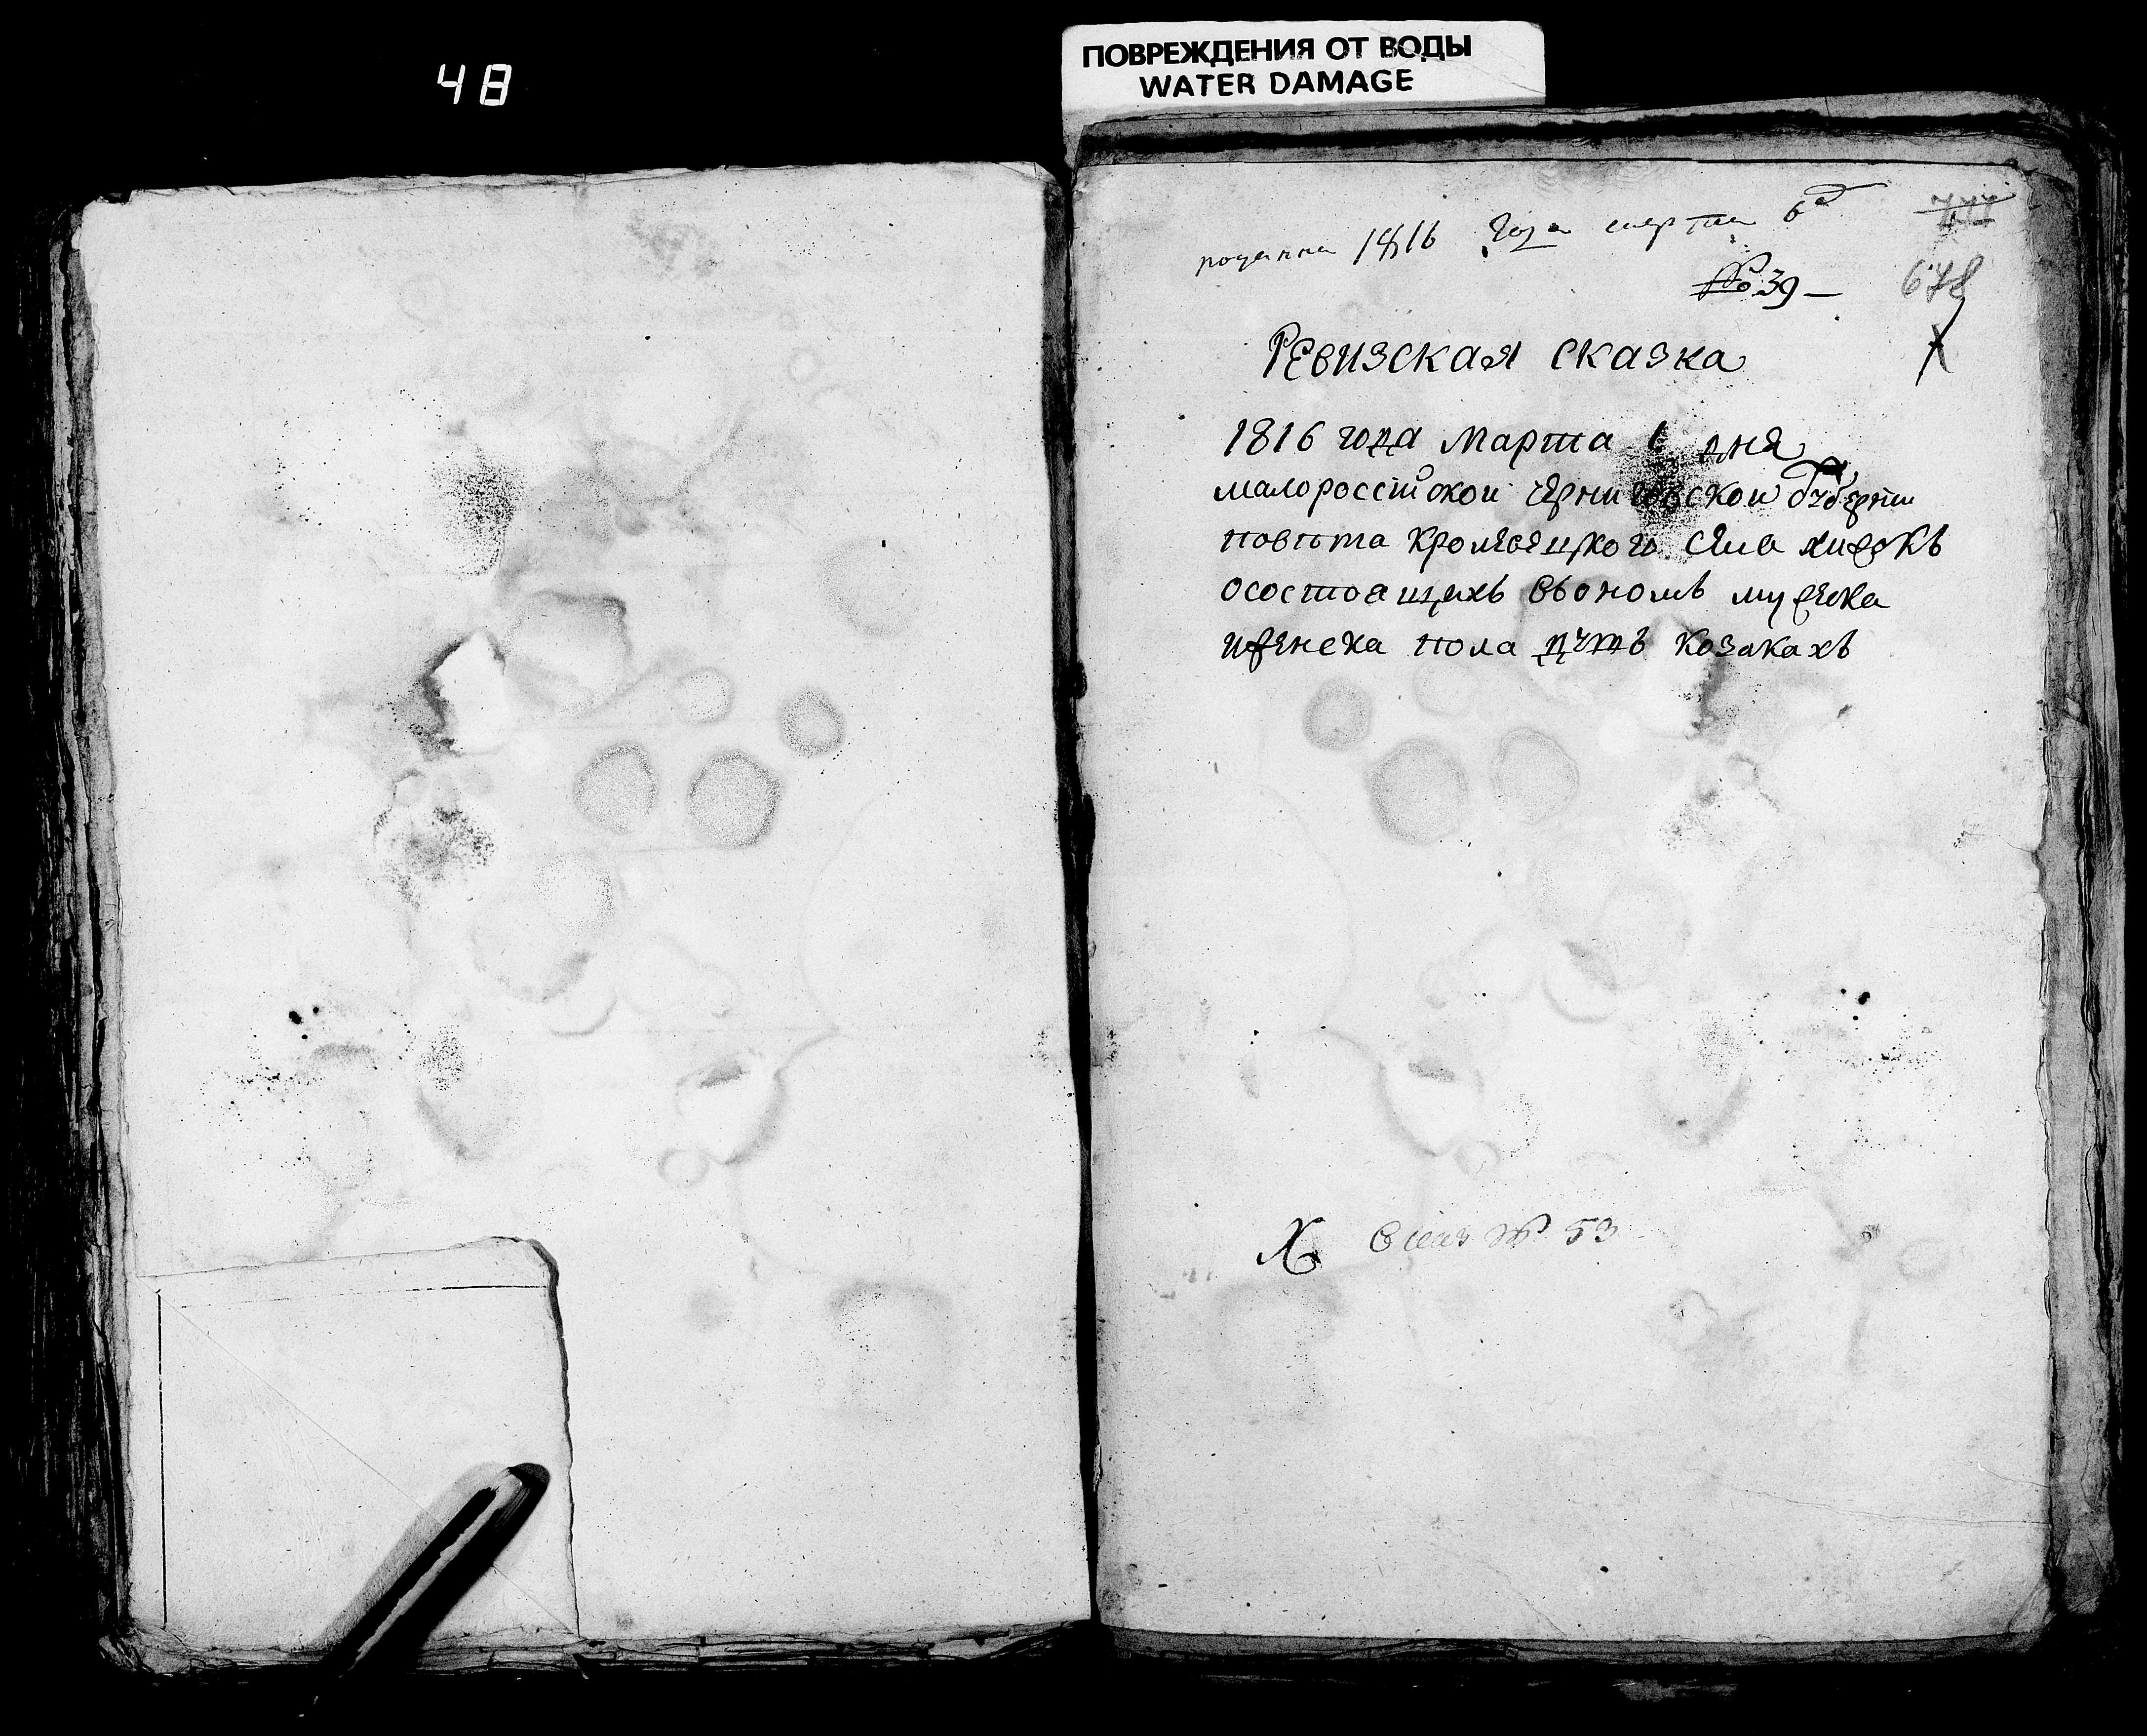 48
ПОВРЕЖДЕНИЯ ОТ ВОДЫ
WATER DAMAGE
1816 года марта 6
№ 39
678
Ревизская сказка
1816 года Марта 6 дня
малороссійской черниговской губерніи
повѣта кролевецкого села
осостоящихъ вьономъ мужеска
иженска пола душъ козакахъ
№ 53